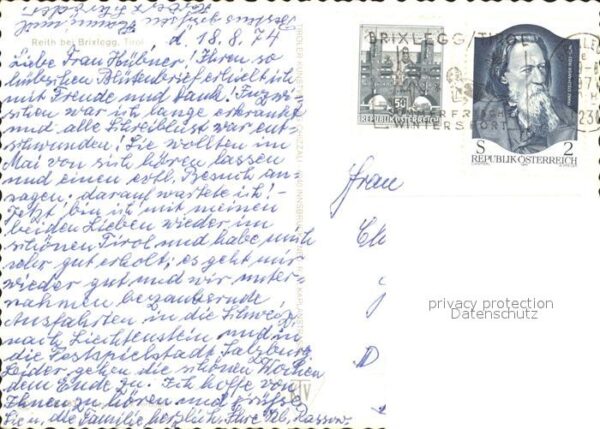 Reith bei Brixlegg, Tirol
d. 18. 8. 74
Liebe Frau Hübner! Ihren so
hübschen Blütenbrief erhielt ich
mit Freude und Dank! Inzwi-
schen war ich lange erkrankt
und alle Schreiblust war ent-
schwunden! Sie wollten im
Mai von sich hören lassen
und einen evtl. Besuch an-
sagen; darauf wartete ich! -
Jetzt bin ich mit meinen
beiden Lieben wieder im
schönen Tirol und habe mich
sehr gut erholt; es geht mir
wieder gut und wir unter-
nahmen bezaubernde
Ausfahrten in die Schweiz,
nach Liechtenstein und in
die Festspielstadt Salzburg
Leider gehen die schönen Wochen
dem Ende zu. Ich hoffe von
Ihnen zu hören und grüße
Sie u. die Familie herzlich. Ihre
BRIXLEGG/TIROL
18
WINTERSPORT
50
REPUBLIK ÖSTERREICH
S 2
REPUBLIK ÖSTERREICH
Frau
privacy protection
Datenschutz